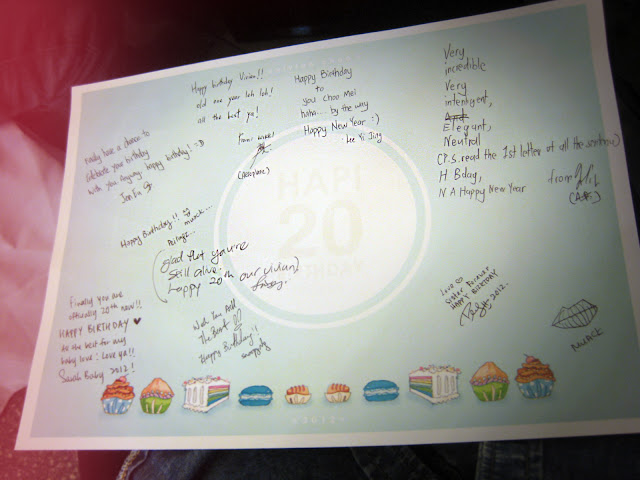 Happy birthday Vivian!!
old one year loh loh!
all the best ya!
From
Happy Birthday
to
you Choo Mei
haha.... by the way
Happy New Year :)
Lee Yi Jing
Very
incredible
Very
intenligent,
Elegant,
Neutral
(P.S. read the 1st letter of all the sentence)
H Bday,
N A Happy New Year
from
Finally have a chance to
Celebrate your birthday
with you. Anyway happy birthday! :D
Happy Birthday!!
muack...
HAPI
20
BIRTHDAY
Glad that you're
Still alive.
Happy 20th our vivian)
Finally you are
officially 20th now!!
HAPPY BIRTHDAY ♥
All the best for my
baby love. Love ya!!
Sarah Baby 2012!
Wish You All
The Best
Happy Birthday!!
Love
Sister Forever
HAPPY BIRTHDAY
2012.
MUACK